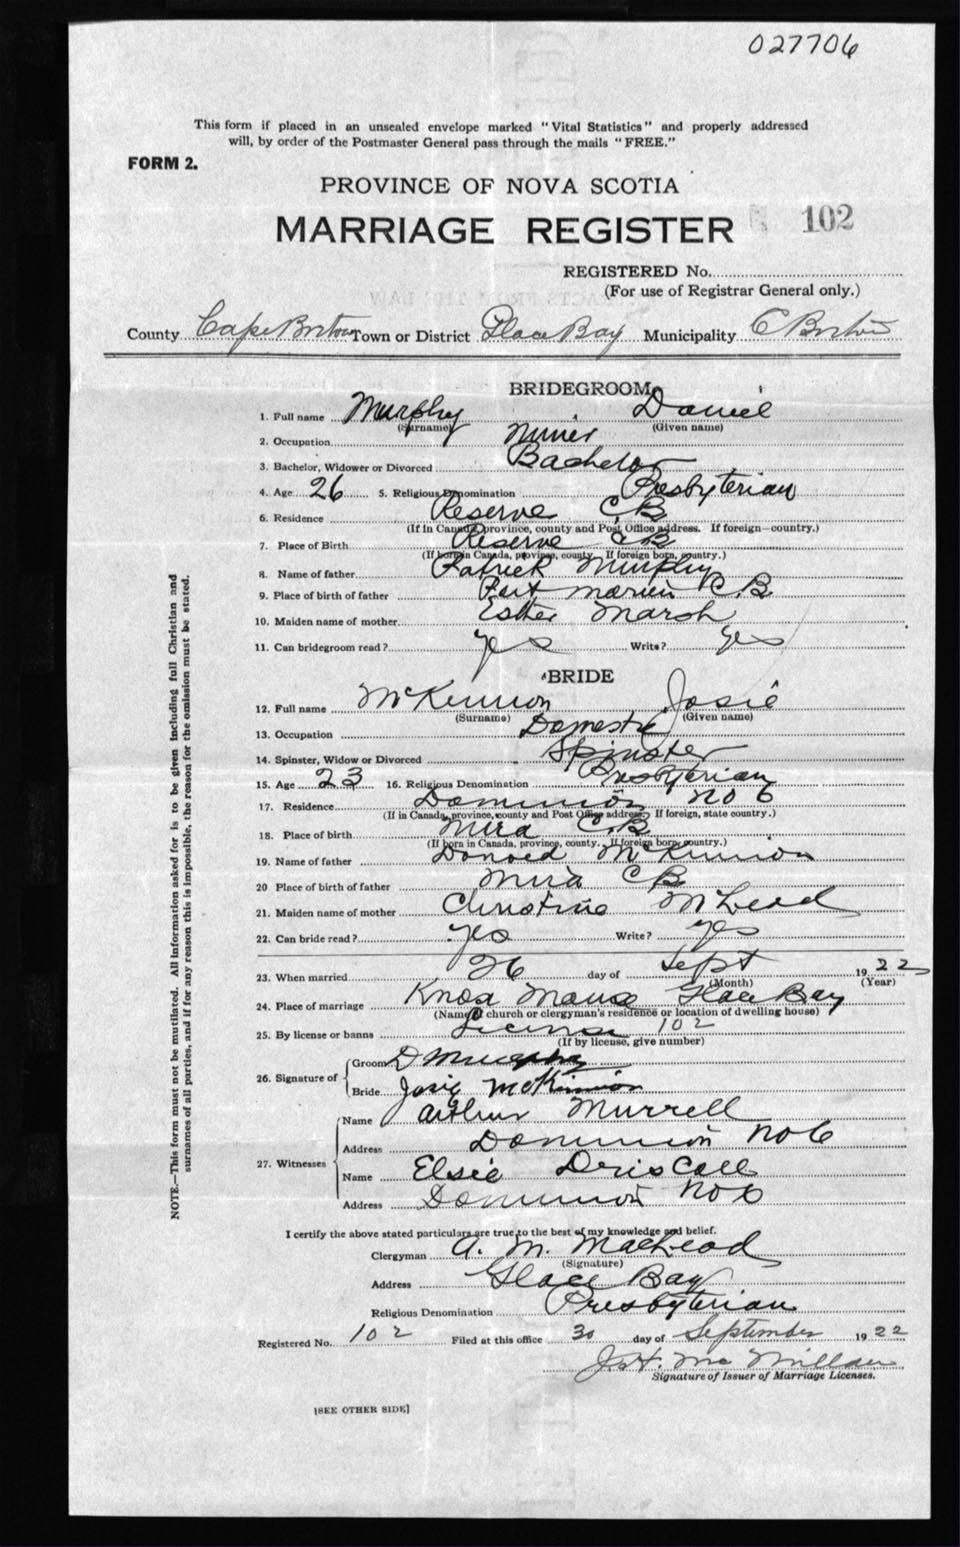 027706
This form if placed in an unsealed envelope marked "Vital Statistics" and properly addressed
will, by order of the Postmaster General pass through the mails "FREE."
FORM 2.
PROVINCE OF NOVA SCOTIA
MARRIAGE REGISTER 102
REGISTERED No.
(For use of Registrar General only.)
County Cape Breton Town or District Glace Bay Municipality C Breton
BRIDEGROOM
1. Full name Murphy Daniel
(Surname) (Given name)
2. Occupation Miner
3. Bachelor, Widower or Divorced Bachelor
4. Age 26 5. Religious Denomination Presbyterian
6. Residence Reserve C B
(If in Canada, province, county and Post Office address. If foreign—country.)
7. Place of Birth Reserve C B
(If born in Canada, province, county. If foreign born, country.)
8. Name of father Patrick Murphy
9. Place of birth of father Port Morien C.B.
10. Maiden name of mother Esther Marsh
11. Can bridegroom read? yes Write? yes
BRIDE
12. Full name McKinnon Josie
(Surname) (Given name)
13. Occupation Domestic
14. Spinster, Widow or Divorced Spinster
15. Age 23 16. Religious Denomination Presbyterian
17. Residence Dominion No 6
(If in Canada, province, county and Post Office address. If foreign, state country.)
18. Place of birth Mira C.B.
(If born in Canada, province, county. If foreign born, country.)
19. Name of father Donald McKinnon
20 Place of birth of father Mira C B
21. Maiden name of mother Christine McLeod
22. Can bride read? yes Write? yes
23. When married 26 day of Sept 1922
(Month) (Year)
24. Place of marriage Knox Manse Glace Bay
(Name of church or clergyman's residence or location of dwelling house)
25. By license or banns License 102
(If by license, give number)
26. Signature of
Groom D Murphy
Bride Josie McKinnon
27. Witnesses
Name Arthur Murrell
Address Dominion No 6
Name Elsie Driscoll
Address Dominion No 6
I certify the above stated particulars are true to the best of my knowledge and belief.
Clergyman A. M. MacLeod
(Signature)
Address Glace Bay
Religious Denomination Presbyterian
Registered No. 102 Filed at this office 30 day of September 1922
J.H. McMillan
Signature of Issuer of Marriage Licenses.
[SEE OTHER SIDE]
NOTE.—This form must not be mutilated. All information asked for is to be given including full Christian and
surnames of all parties, and if for any reason this is impossible, the reason for the omission must be stated.